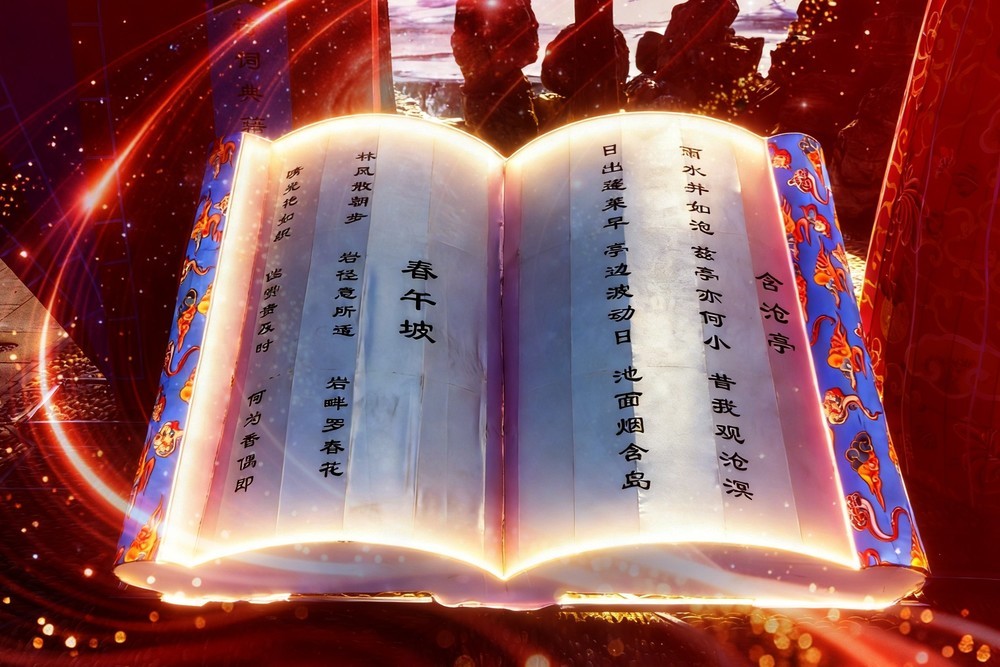 词典籍
含沧亭
雨水井如沧 兹亭亦何小 昔我观沧溟
日出蓬莱早 亭边波动日 池面烟含岛
春午坡
林风散朝步 岩径意所适 岩畔罗春花
光艳如织 贵及时 何为香偶即